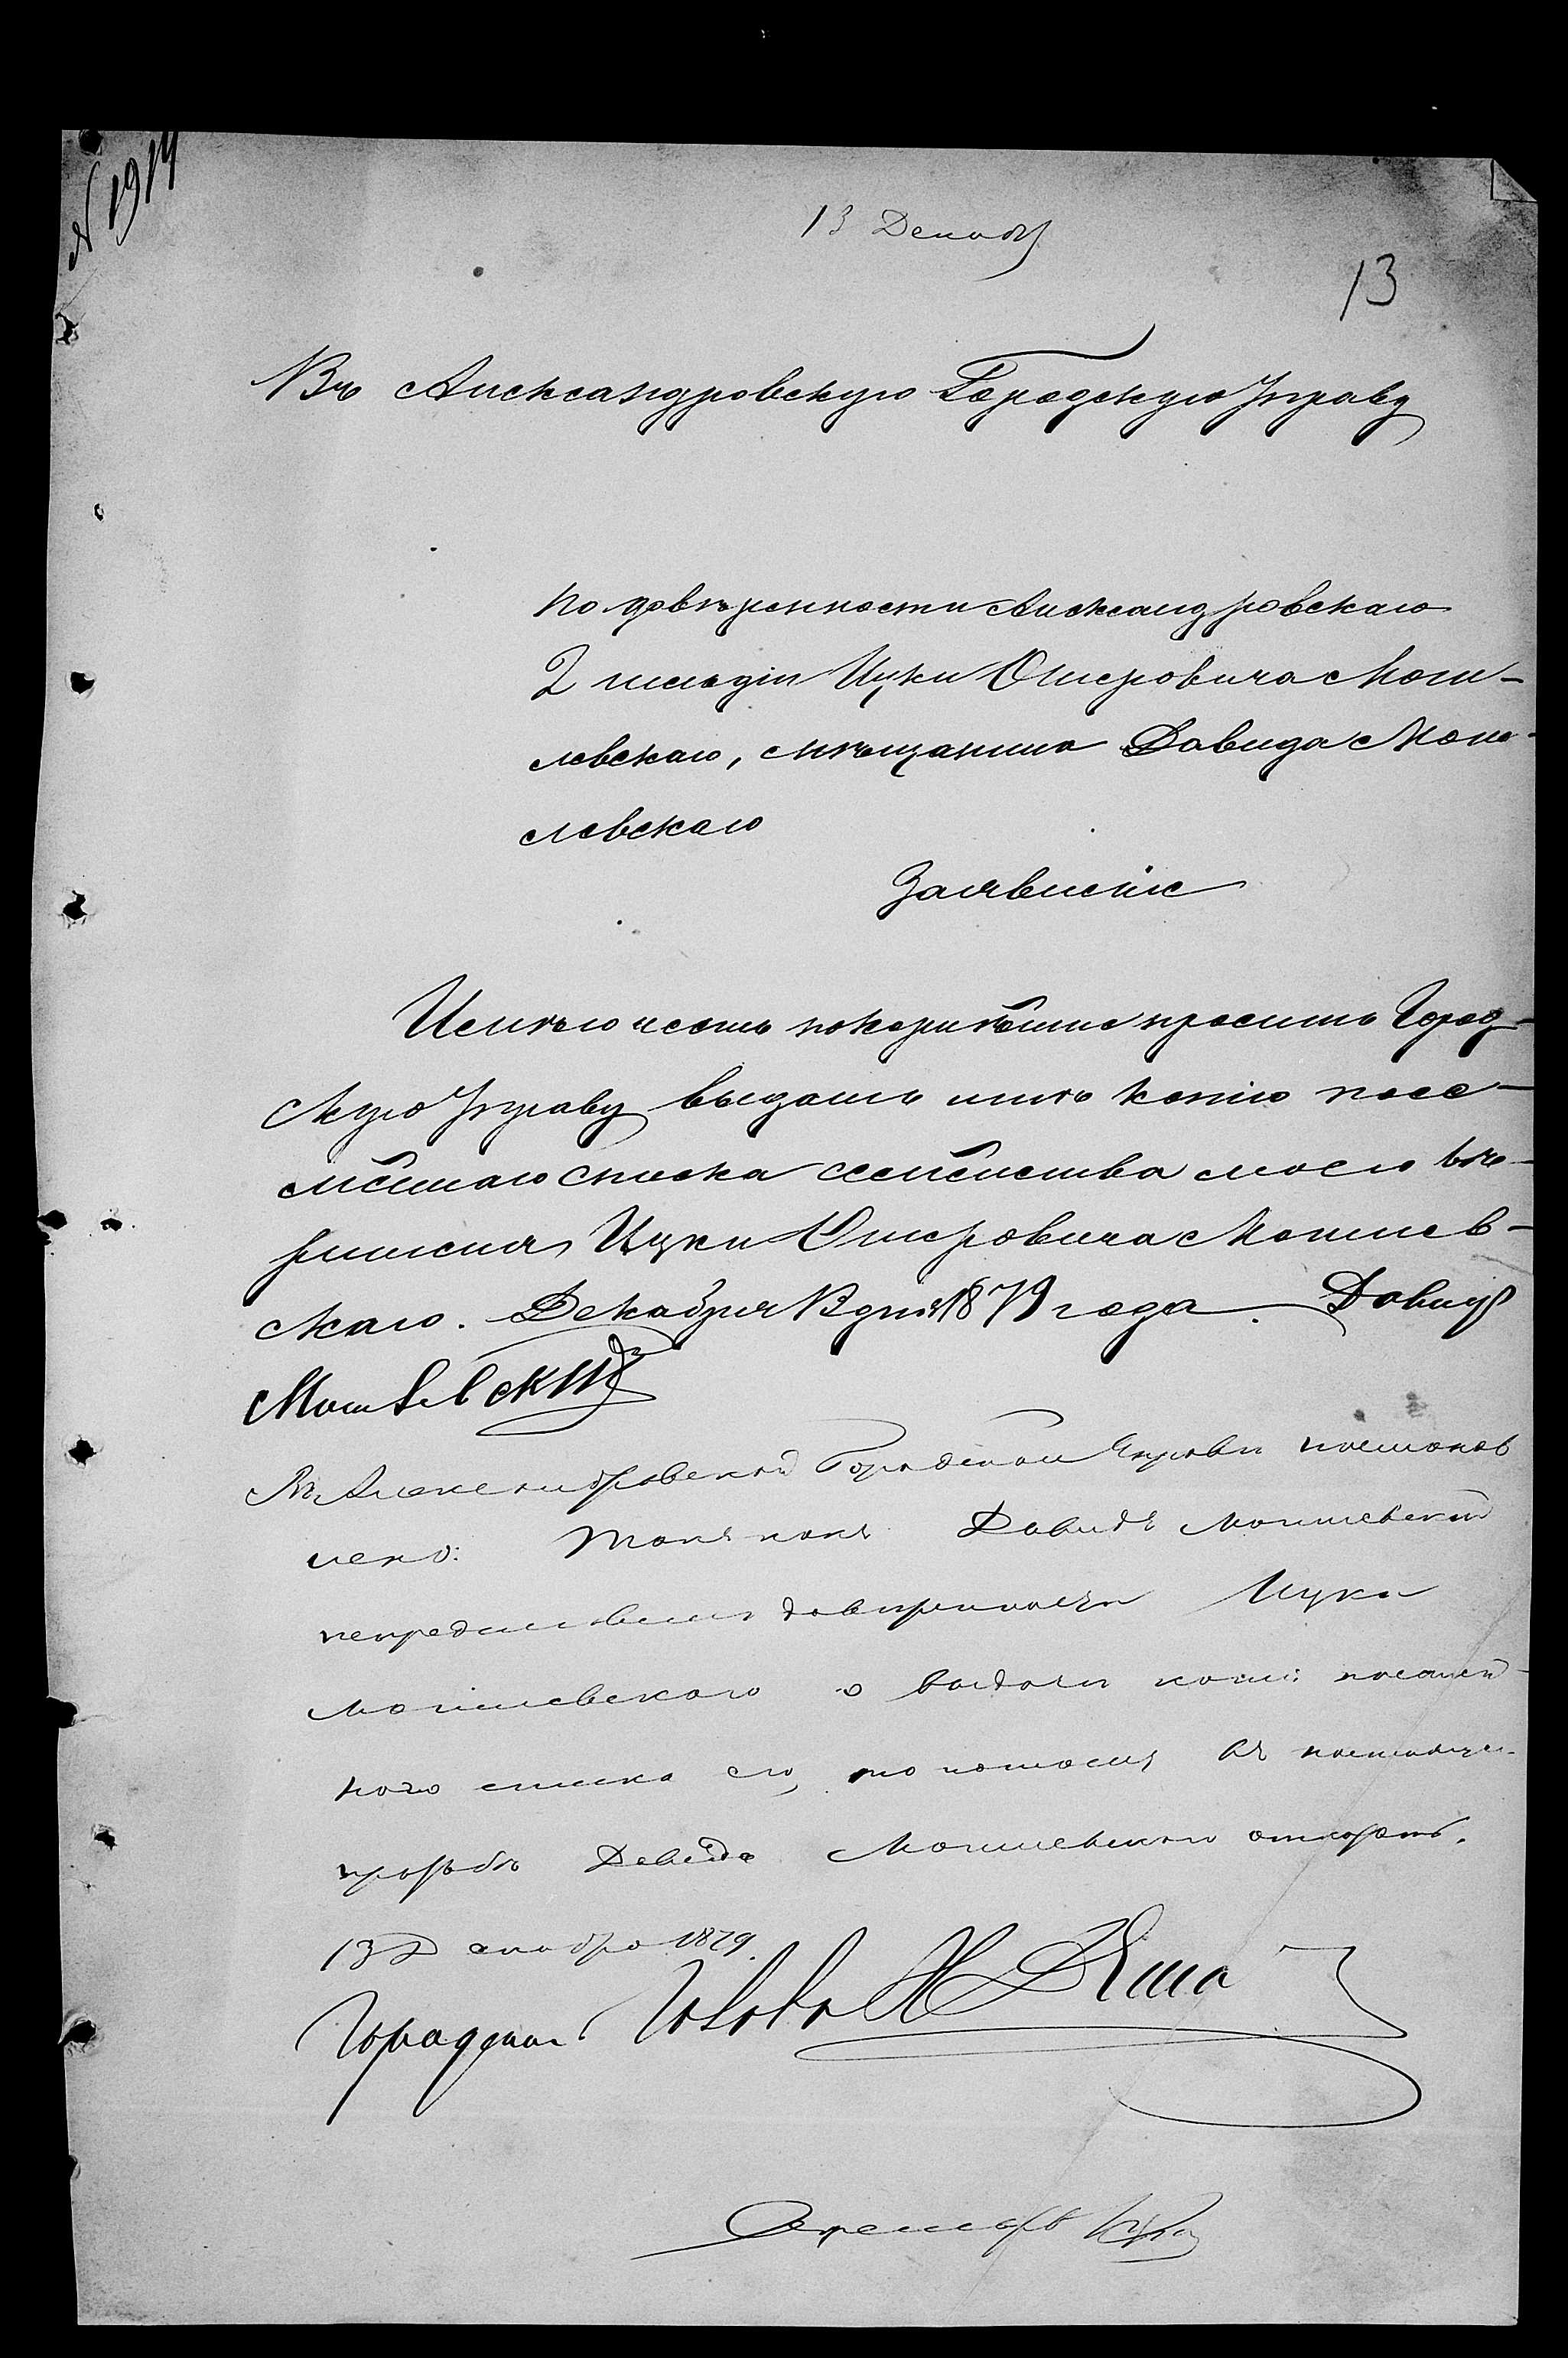 N 1914
13 Декаб
13
Въ Александровскую Городскую Управу
По доверенности Александровскаго
2 гильдіи Ицки Ошеровича Моги-
левскаго, мѣщанина Давида Моги-
левскаго
Заявленіе
Имѣю честь покорнѣйше просить Город-
скую Управу выдать мнѣ копію посе-
мейнаго списка семейства моего вѣ-
рителя Ицки Ошеровича Могилев-
скаго. Декабря 13 дня 1879 года. Давидъ
Могилевскій
Въ Александровской Городской Управѣ постанов
лено: такъ какъ Давидъ Могилевскій
непредставилъ довѣренности Ицки
Могилевскаго о выдачи копіи посемей-
наго списка его, то
просьбѣ Давида Могилевскаго отказать.
13 Декабря 1879.
Городской Голова
Секретарь